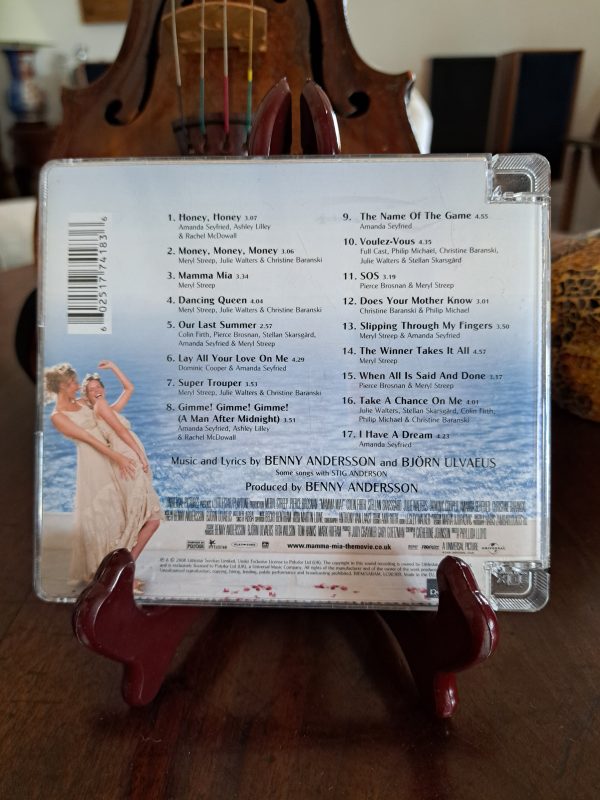 1. Honey, Honey 3.07
Amanda Seyfried, Ashley Lilley
& Rachel McDowall
2. Money, Money, Money 3.06
Meryl Streep, Julie Walters & Christine Baranski
3. Mamma Mia 3.34
Meryl Streep
4. Dancing Queen 4.04
Meryl Streep, Julie Walters & Christine Baranski
5. Our Last Summer 2.57
Colin Firth, Pierce Brosnan, Stellan Skarsgård,
Amanda Seyfried & Meryl Streep
6. Lay All Your Love On Me 4.29
Dominic Cooper & Amanda Seyfried
7. Super Trouper 3.53
Meryl Streep, Julie Walters & Christine Baranski
8. Gimme! Gimme! Gimme!
(A Man After Midnight) 3.51
Amanda Seyfried, Ashley Lilley
& Rachel McDowall
9. The Name Of The Game 4.55
Amanda Seyfried
10. Voulez-Vous 4.35
Full Cast, Philip Michael, Christine Baranski,
Julie Walters & Stellan Skarsgård
11. SOS 3.19
Pierce Brosnan & Meryl Streep
12. Does Your Mother Know 3.01
Christine Baranski & Philip Michael
13. Slipping Through My Fingers 3.50
Meryl Streep & Amanda Seyfried
14. The Winner Takes It All 4.57
Meryl Streep
15. When All Is Said And Done 3.17
Pierce Brosnan & Meryl Streep
16. Take A Chance On Me 4.01
Julie Walters, Stellan Skarsgård, Colin Firth,
Philip Michael & Christine Baranski
17. I Have A Dream 4.23
Amanda Seyfried
6 02517 74183 6
Music and Lyrics by BENNY ANDERSSON and BJÖRN ULVAEUS
Some songs with STIG ANDERSON
Produced by BENNY ANDERSSON
www.mamma-mia-themovie.co.uk
A UNIVERSAL PICTURE
UNIVERSAL